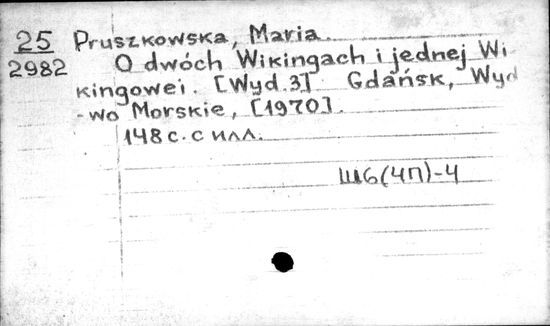 25 Pruszkowska, Maria.
2982 O dwóch Wikingach i jednej Wi-
kingowei. [Wyd. 3] Gdańsk, Wyd
-wo Morskie, [1970].
148 с. с илл.
Ш6(4П)-4